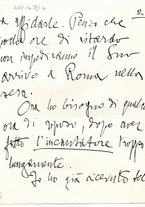 2
a affidarle. Penso che
poche ore di ritardo
non impediranno il Suo
arrivo a Roma nella
sera.
Ora ho bisogno di qualche
ora di riposo, dopo aver
fatto l'incantatore troppo
lungamente.
Io ho già ricevuto